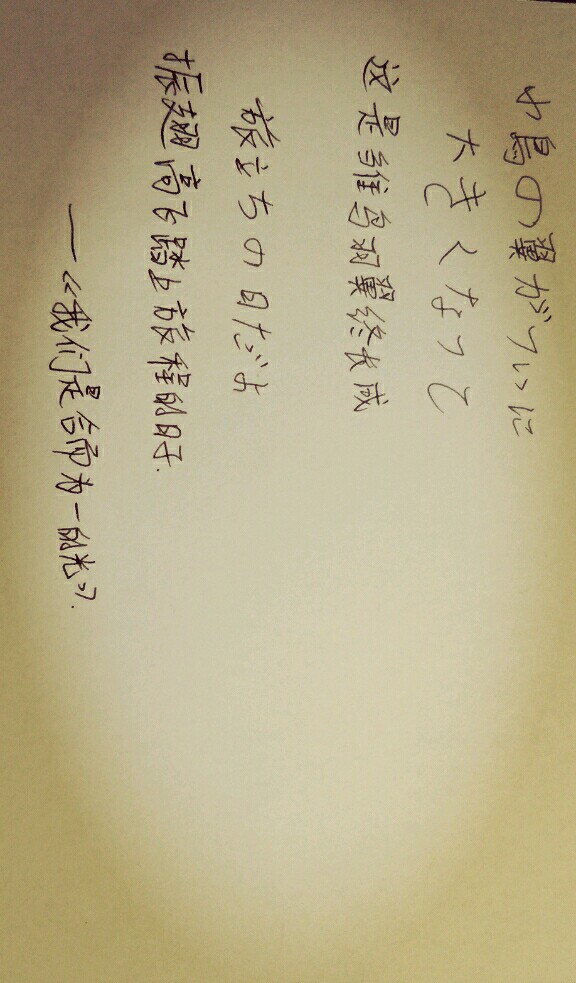 小鳥の翼がついに
大きくなって
这是雏鸟羽翼终长成
旅立ちの日だよ
振翅高飞踏上旅程的日子.
—《我们是合而为一的光》.